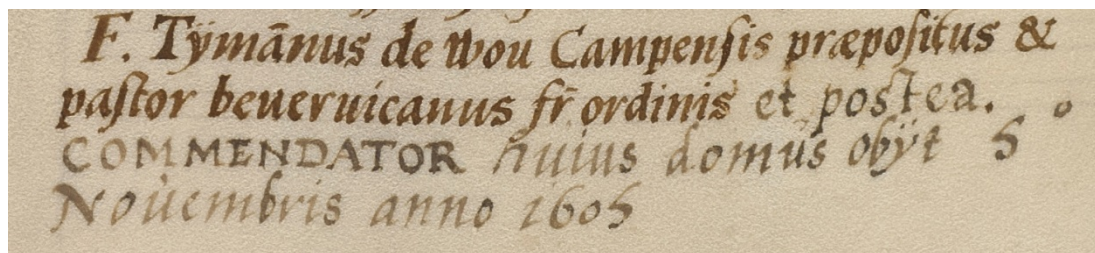 F. Tÿmānus de wou Campensis præpositus &
pastor beueruicanus fr̄ ordinis et postea.
COMMENDATOR huius domus obÿt 5
Nouembris anno 1605